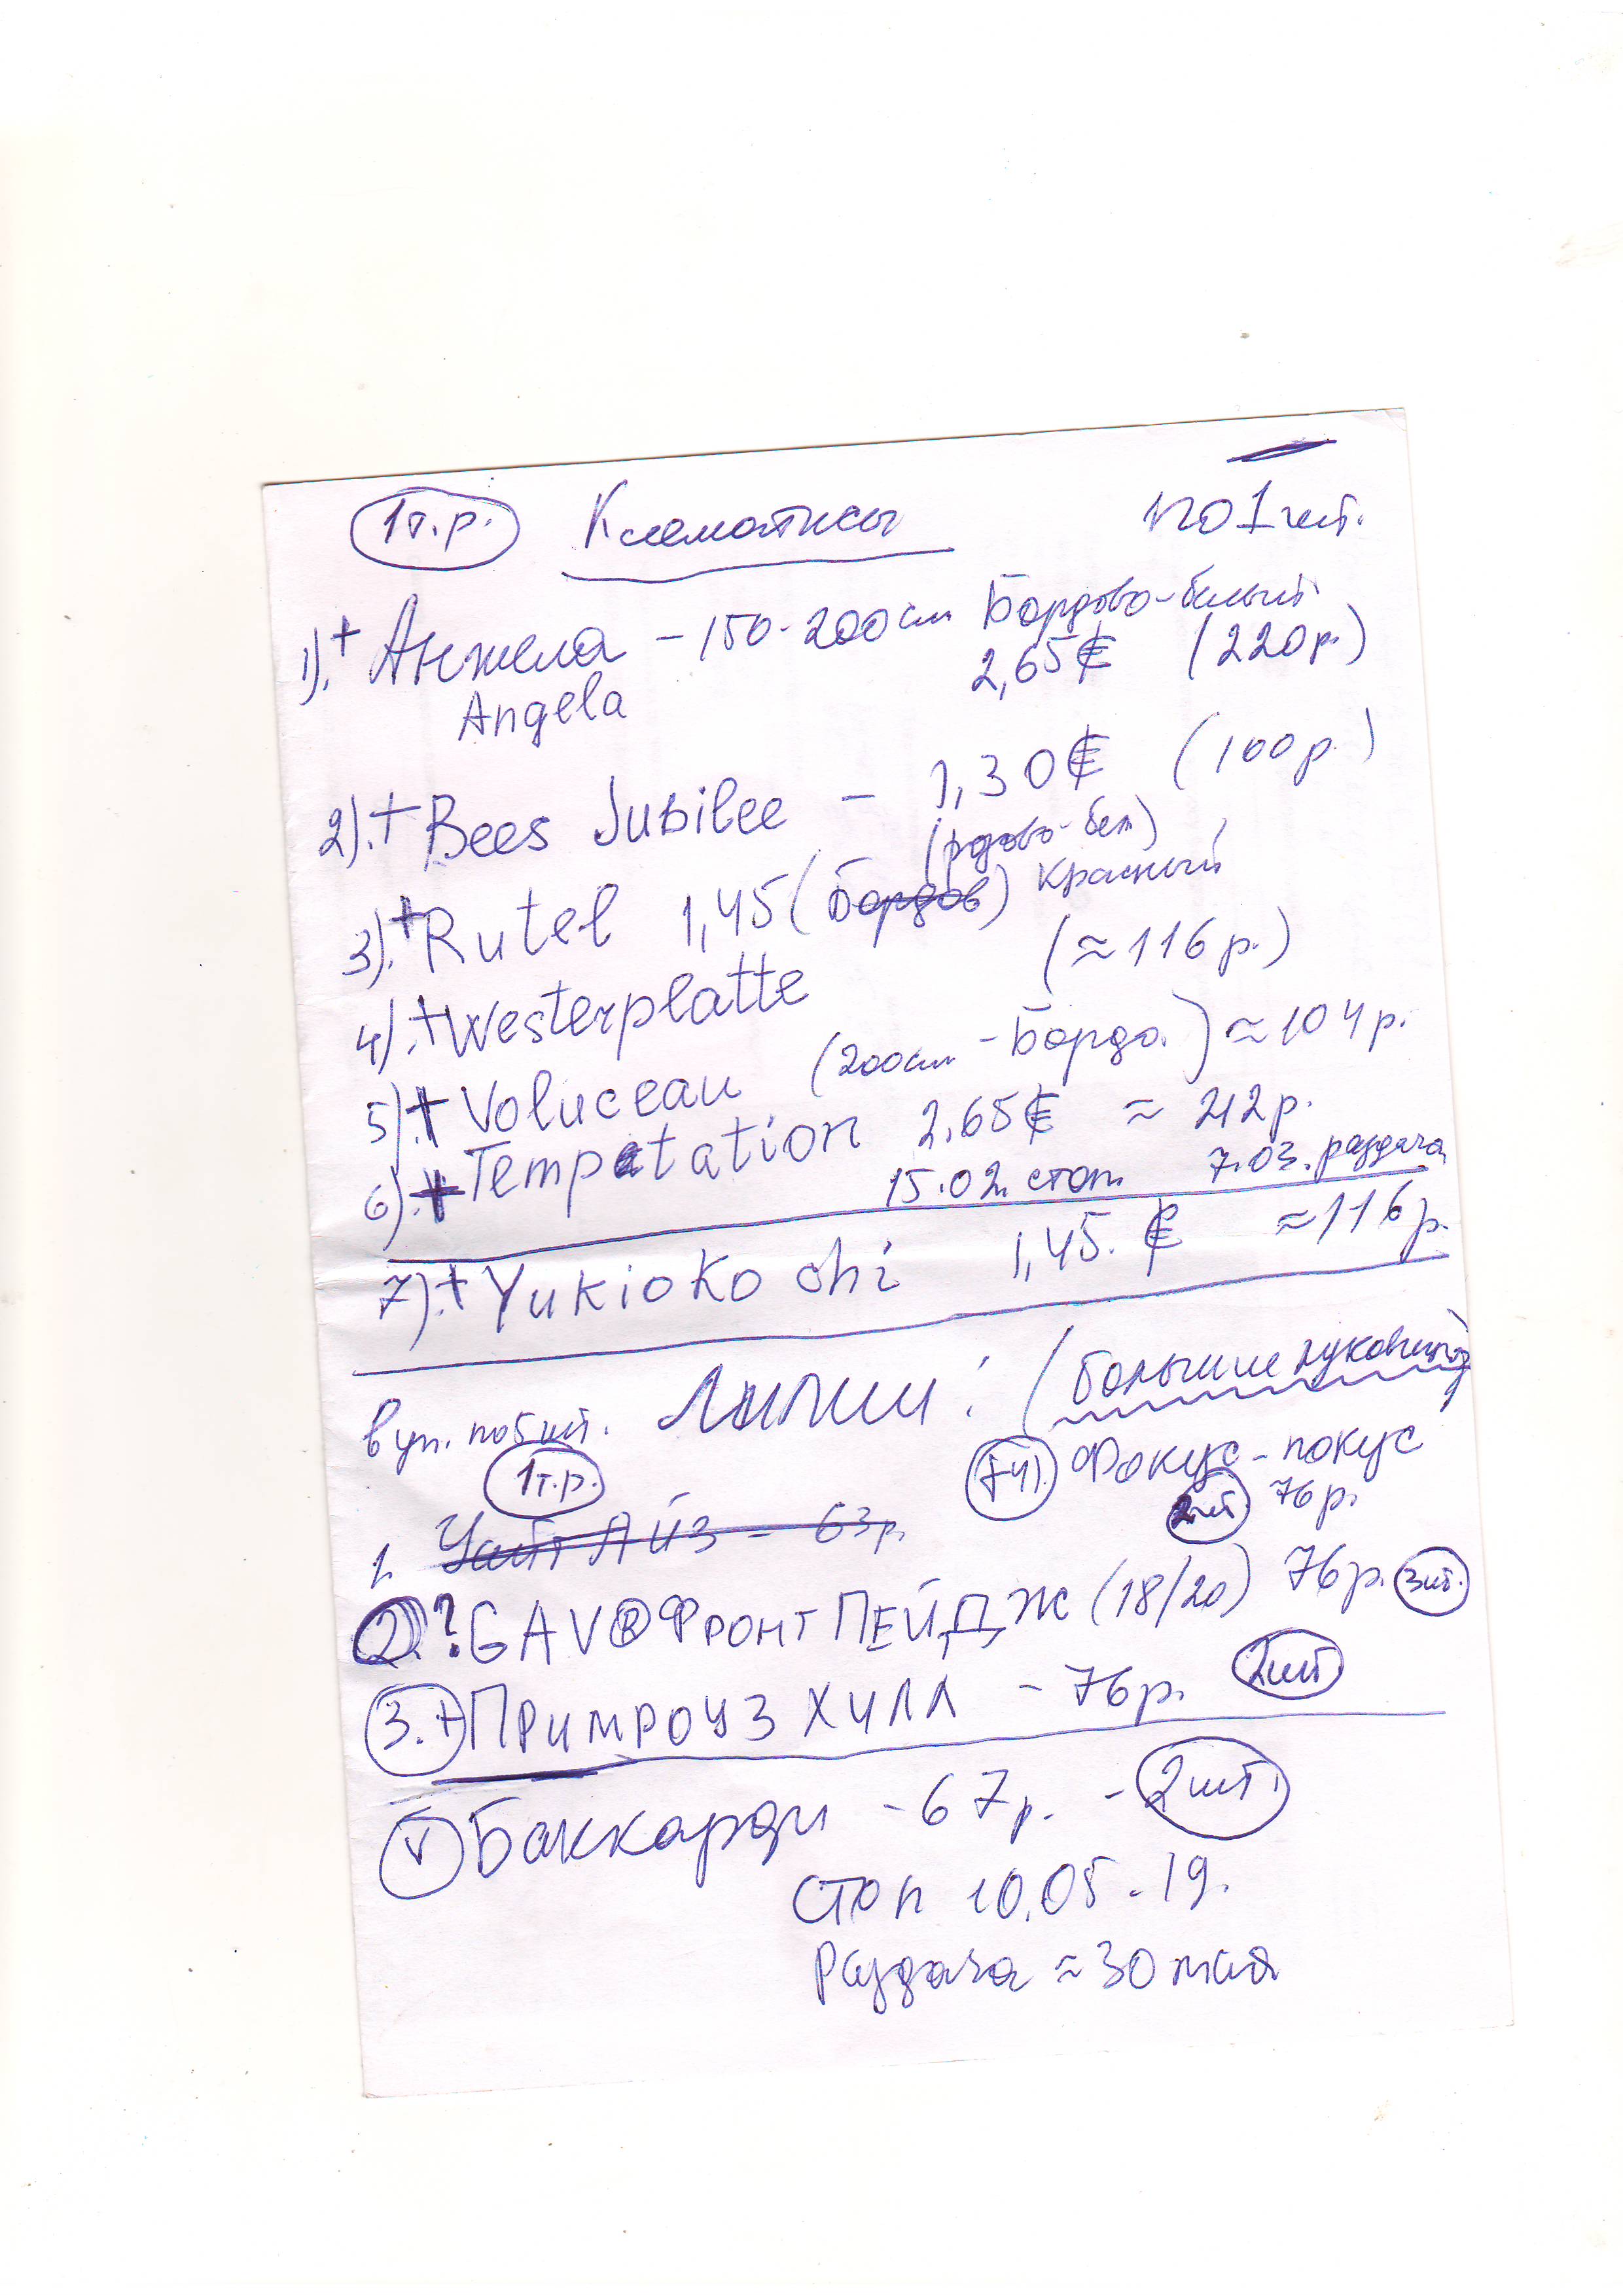 1т.р. Клематисы по 1 шт.
1).+ Анжела - 150-200см Бордово-белый
Angela 2,65€ (220р.)
2).+ Bees Jubilee - 1,30€ (100р.)
-бел)
3).+ Rutel 1,45 (Бордов) красный
(≈116р.)
4).+ Westerplatte
5).+ Voluceau (200см - Бордо.) ≈104р.
6).+ Temptation 2.65€ ≈ 212р.
15.02 стоп 7.03. раздача
7).+ Yukiokoshi 1,45. € ≈116р.
в уп. по 5 шт. Лилии: (большие луковицы)
1т.р. Фокус-покус
2шт 76р.
1. Уайт Айз - 63р.
2. ? GAV® Фронт Пейдж (18/20) 76р. 3шт.
3.+ Примроуз Хилл - 76р. 2шт
v Баккарди - 67р. - 2шт.
Стоп 10.05.19.
Раздача ≈ 30 мая